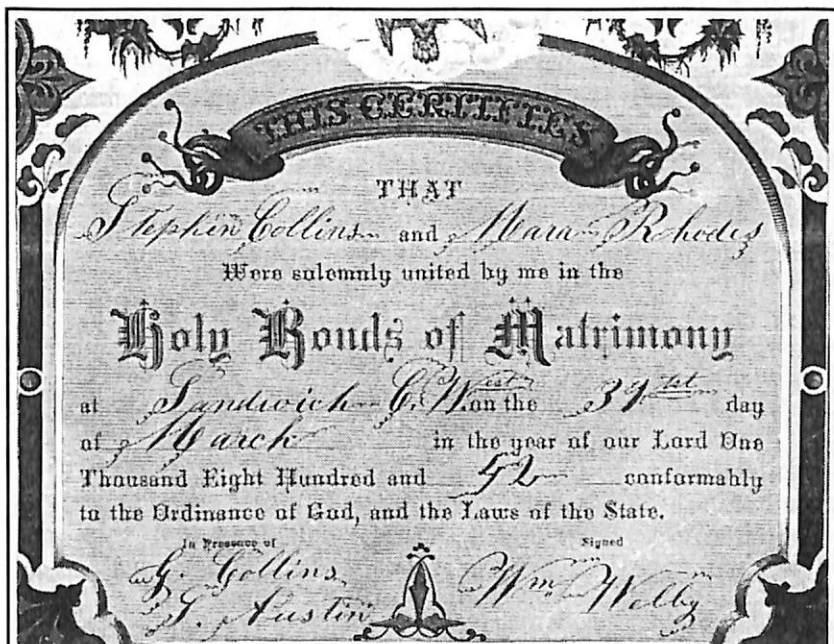 THIS CERTIFIES
THAT
Stephen Collins and Mara Rhodes
Were solemnly united by me in the
Holy Bonds of Matrimony
at Sandwich C. West on the 31st day
of March in the year of our Lord One
Thousand Eight Hundred and 52 conformably
to the Ordinance of God, and the Laws of the State.
In Presence of Signed
G. Collins Wm Welby
S. Austin